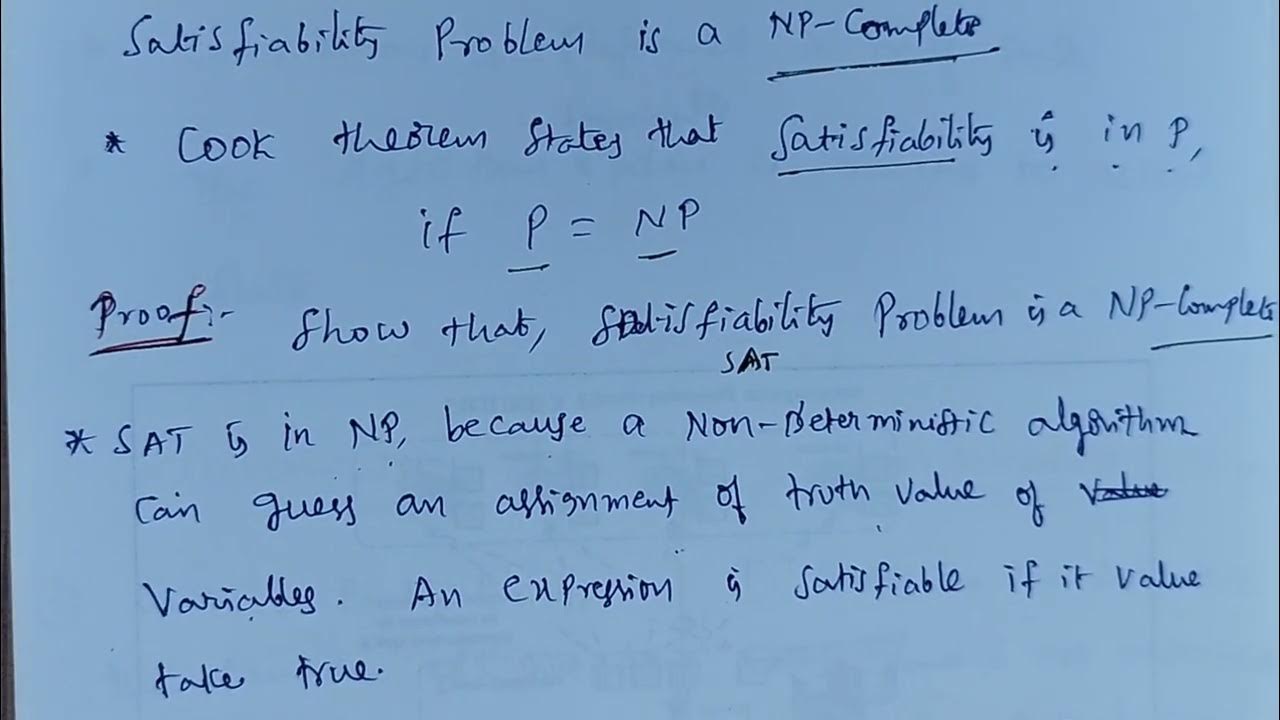 Satisfiability Problem is a NP-Complete
* Cook theorem states that satisfiability is in P,
if P = NP
Proof:- Show that, Satisfiability Problem is a NP-Complete
SAT
* SAT is in NP, because a Non-Deterministic algorithm
can guess an assignment of truth value of value
Variables. An expression is satisfiable if it value
take true.